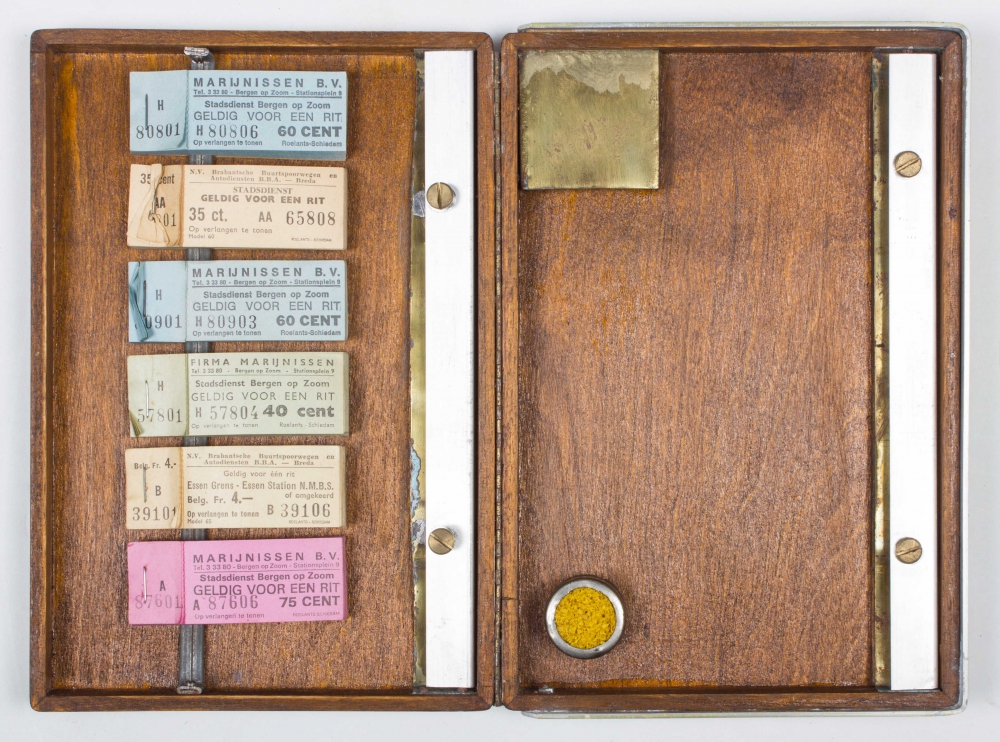 MARIJNISSEN B.V.
Tel. 3 33 80 - Bergen op Zoom - Stationsplein 9
Stadsdienst Bergen op Zoom
GELDIG VOOR EEN RIT
H 80806 60 CENT
Op verlangen te tonen Roelants-Schiedam
H
80801
N.V. Brabantsche Buurtspoorwegen en
Autodiensten B.B.A. — Breda
STADSDIENST
GELDIG VOOR EEN RIT
35 ct. AA 65808
Op verlangen te tonen
Model 60 ROELANTS - SCHIEDAM
35 cent
AA
01
MARIJNISSEN B.V.
Tel. 3 33 80 - Bergen op Zoom - Stationsplein 9
Stadsdienst Bergen op Zoom
GELDIG VOOR EEN RIT
H 80903 60 CENT
Op verlangen te tonen Roelants-Schiedam
H
0901
FIRMA MARIJNISSEN
Tel. 3 33 80 - Bergen op Zoom - Stationsplein 9
Stadsdienst Bergen op Zoom
GELDIG VOOR EEN RIT
H 57804 40 cent
Op verlangen te tonen Roelants - Schiedam
H
57801
N.V. Brabantsche Buurtspoorwegen en
Autodiensten B.B.A. — Breda
Geldig voor één rit
Essen Grens - Essen Station N.M.B.S.
of omgekeerd
Belg. Fr. 4.—
Op verlangen te tonen B 39106
Model 60 ROELANTS - SCHIEDAM
Belg. Fr. 4.-
B
39101
MARIJNISSEN B.V.
Tel. 3 33 80 - Bergen op Zoom - Stationsplein 9
Stadsdienst Bergen op Zoom
GELDIG VOOR EEN RIT
A 87606 75 CENT
Op verlangen te tonen ROELANTS-SCHIEDAM
A
87601